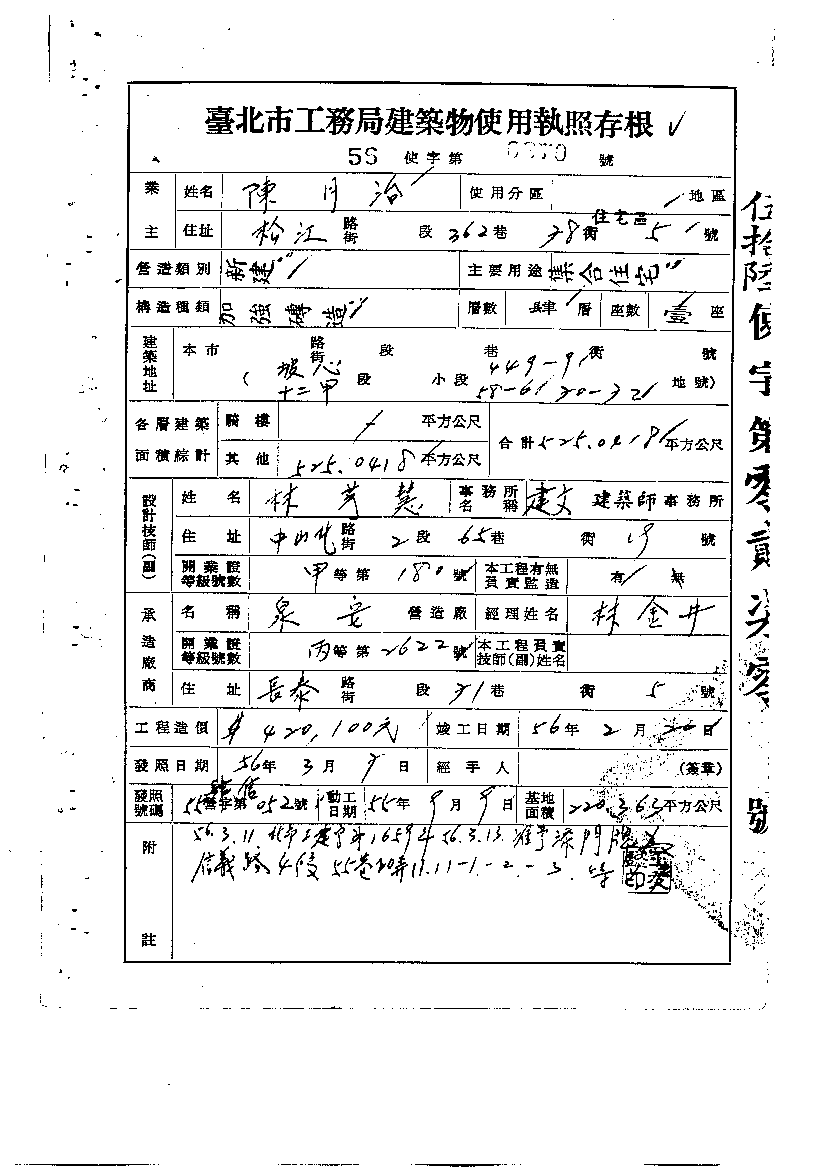 臺北市工務局建築物使用執照存根
56 使字第 0270 號
業主 姓名 陳月治 使用分區 住宅區 地區
住址 松江 路街 段 362巷 街 5 號
營造類別 新建 主要用途 集合住宅
構造種類 加強磚造 層數 肆 層 座數 壹 座
建築地址 本市 路街 段 巷 街 號
( 坡心 十二甲 段 小段 449-9 地號)
各層建築面積綜計 騎樓 平方公尺 合計 525.0418 平方公尺
其他 525.0418 平方公尺
設計技師(副) 姓名 林芳慧 事務所名稱 建文 建築師事務所
住址 中山北 路街 2段 65巷 街 19 號
開業證等級號數 甲等第 180 號 本工程有無負責監造 有 無
承造廠商 名稱 泉安 營造廠 經理姓名 林金井
開業證等級號數 丙等第 2622 號 本工程負責技師(副)姓名
住址 長泰 路街 段 31巷 街 5 號
工程造價 $420,100元 竣工日期 56年 2月 日
發照日期 56年 3月 日 經手人 (簽章)
發照號碼 55 字第 052號 動工日期 55年 9月 9日 基地面積 220.363 平方公尺
附註 56.3.11 北市工建字第1659 56.3.13. 門牌
信義路4段55巷20弄11.11-1.-2.-3.號
伍拾陸使字第零貳柒零號